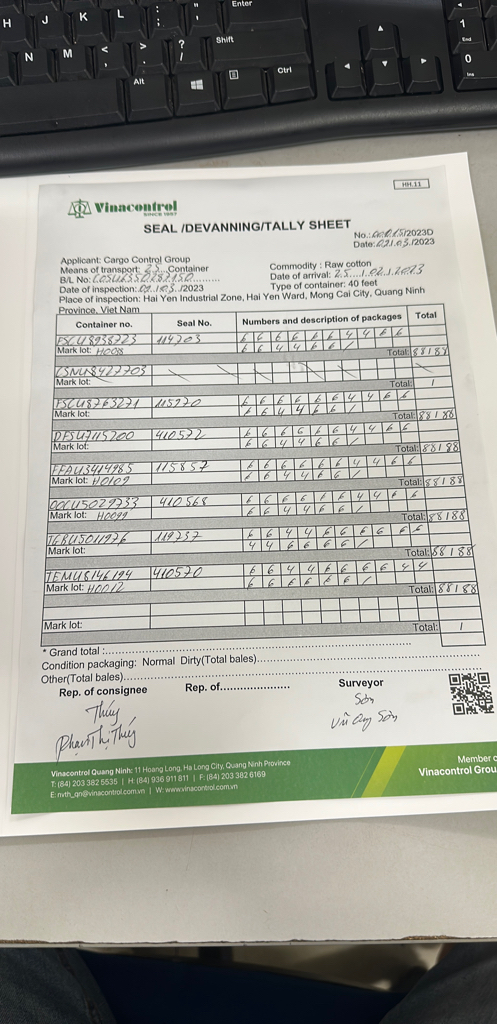 Enter
H J K L
Shift
N M < > ?
Alt
Ctrl
1
End
0
Ins
HH.11
Vinacontrol
SINCE 1957
SEAL /DEVANNING/TALLY SHEET
No.: /2023D
Date: 02/.03./2023
Applicant: Cargo Control Group
Commodity : Raw cotton
Means of transport: 23 Container
Date of arrival: 25 / 02 / 2023
B/L No: COSU6350287150
Type of container: 40 feet
Date of inspection: 02/03./2023
Place of inspection: Hai Yen Industrial Zone, Hai Yen Ward, Mong Cai City, Quang Ninh
Province, Viet Nam
Container no. Seal No. Numbers and description of packages Total
114203 6 6 6 6 6 6 4 4 6 6
Mark lot: H008 6 6 4 4 6 6 /
Total: 88 188
Mark lot:
Total: /
FSCU8763271 115270 6 6 6 6 6 6 4 4 6 6
Mark lot: 6 6 4 4 6 6 /
Total: 88 188
DFSU7115200 410572 6 6 6 6 6 6 4 4 6 6
Mark lot: 6 6 4 4 6 6 /
Total: 88 188
FFAU3414985 115857 6 6 6 6 6 6 4 4 6 6
Mark lot: H0109 6 6 4 4 6 6 /
Total: 88 188
OOCU5029733 410568 6 6 6 6 6 6 4 4 6 6
Mark lot: H0099 6 6 4 4 6 6 /
Total: 88 188
TGBU5011976 119737 6 6 4 4 6 6 6 6 6 6
Mark lot: 4 4 6 6 6 6 /
Total: 88 188
TEMU8146194 410570 6 6 4 4 6 6 6 6 4 4
Mark lot: H0012 6 6 6 6 6 6 /
Total: 88 188
Mark lot:
Total: /
* Grand total :
Condition packaging: Normal Dirty(Total bales)
Other(Total bales)
Rep. of consignee Rep. of Surveyor
Thúy Sơn
Phạm Thị Thúy Vũ Sơn
Vinacontrol Quang Ninh: 11 Hoang Long, Ha Long City, Quang Ninh Province
T: (84) 203 382 5535 | H: (84) 936 911 811 | F: (84) 203 382 6169
E: nvth_qn@vinacontrol.com.vn | W: www.vinacontrol.com.vn
Member o
Vinacontrol Grou